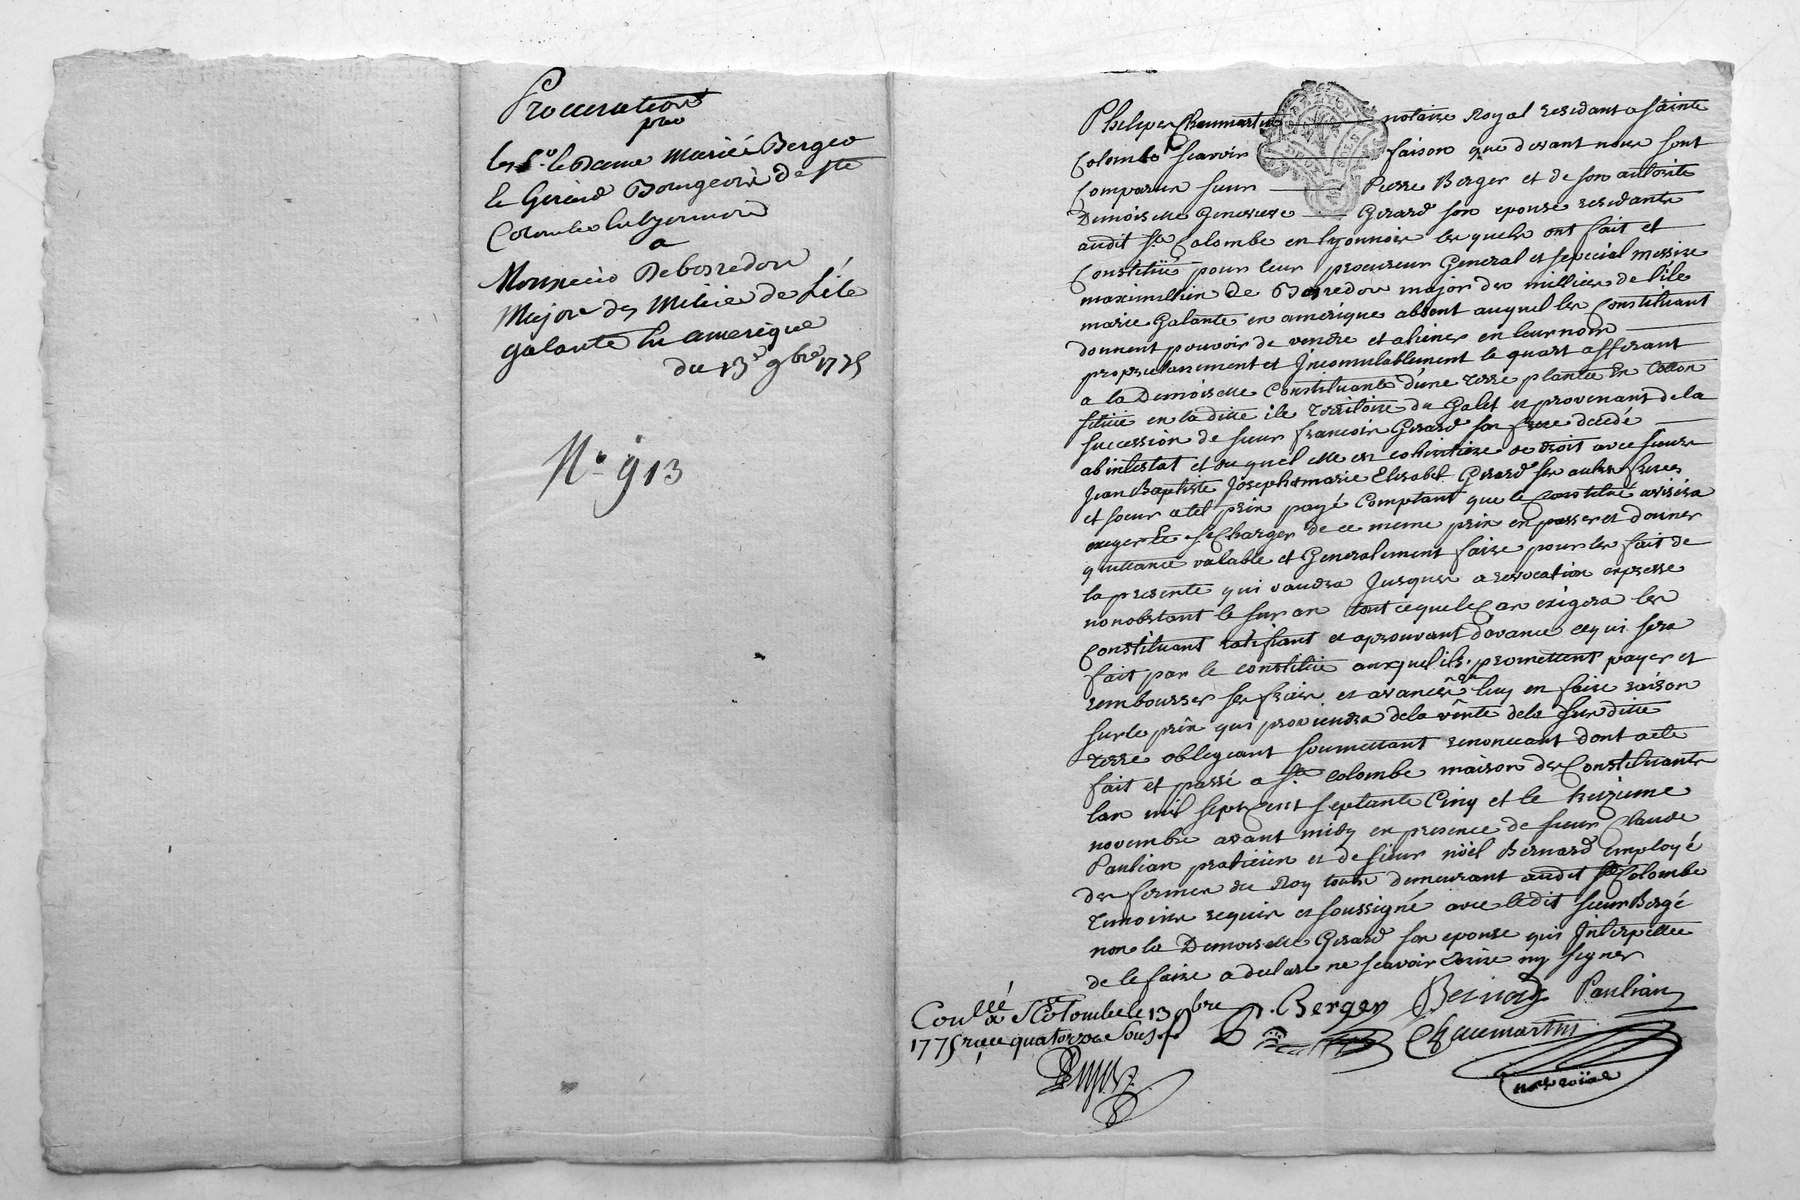 Procuration
pour
les Sr. & Dame Mariés Berger
& Gérard Bourgeois de Ste
Colombe en lyonnois
a
Monsieur Debosredon
Major des Milice de L'ile
galante En amerique
du 13e 9bre 1775
No 913
Phelipes Chaumartin notaire Royal residant a sainte
Colombe scavoir faison que devant nous sont
Comparus sieur Pierre Berger et de son autorite
Demoiselle Genevieve Gerard son epouse residants
audit Ste Colombe en lyonnois lesquels ont fait et
Constitüé pour leur procureur General et special messire
maximilien de Bosredon major des millices de l'ile
marie Galante en amérique absent auquel les Constituant
donnent pouvoir de vendre et aliener en leur nom
proprietairement et Incomutablement le quart afferant
a la Demoiselle Constituante d'une terre plantée En Cotton
sitüée en la ditte ile territoire du Galet et provenant de la
succession de sieur francois Gerard son frere décédé
abintestat et duquel elle est cohéritiere de droit avec sieurs
Jean Baptiste Joseph & marie Elisabet Gerard ses autres freres
et soeur a tel prix payé Comptant que le Constitué avisera
exiger Et se Charger de ce meme prix en passer et donner
quittance valable et Generalement faire pour les fait de
la presente qui vaudra Jusques a revocation expresse
nonobstant le sur an tout ce que le Cas exigera les
Constituant ratifiant et aprouvant d'avance ce qui sera
fait par le constitüé auxquel ils promettent payer et
rembourser ses frais et avances ou luy en faire raison
sur le prix qui proviendra de la vente de la susditte
terre obligeant soumettant renonceant dont acte
fait et passé a Ste colombe maison des Constituants
lan mil sept Cent septante Cinq et le treizieme
novembre avant midy en presence de sieur Claude
Paulian praticien et de sieur noël Bernard Employé
des fermes du Roy tous demeurant audit Ste Colombe
temoins requis et soussigné avec ledit sieur Bergé
non la Demoiselle Gerard son epouse qui Interpellée
de le faire a declaré ne scavoir Ecrire ny signer
P. Berger Bernard Paulian
Chaumartin
notre roïal
Conllé a Ste Colombe le 13 9bre
1775 reçu quatorze sous